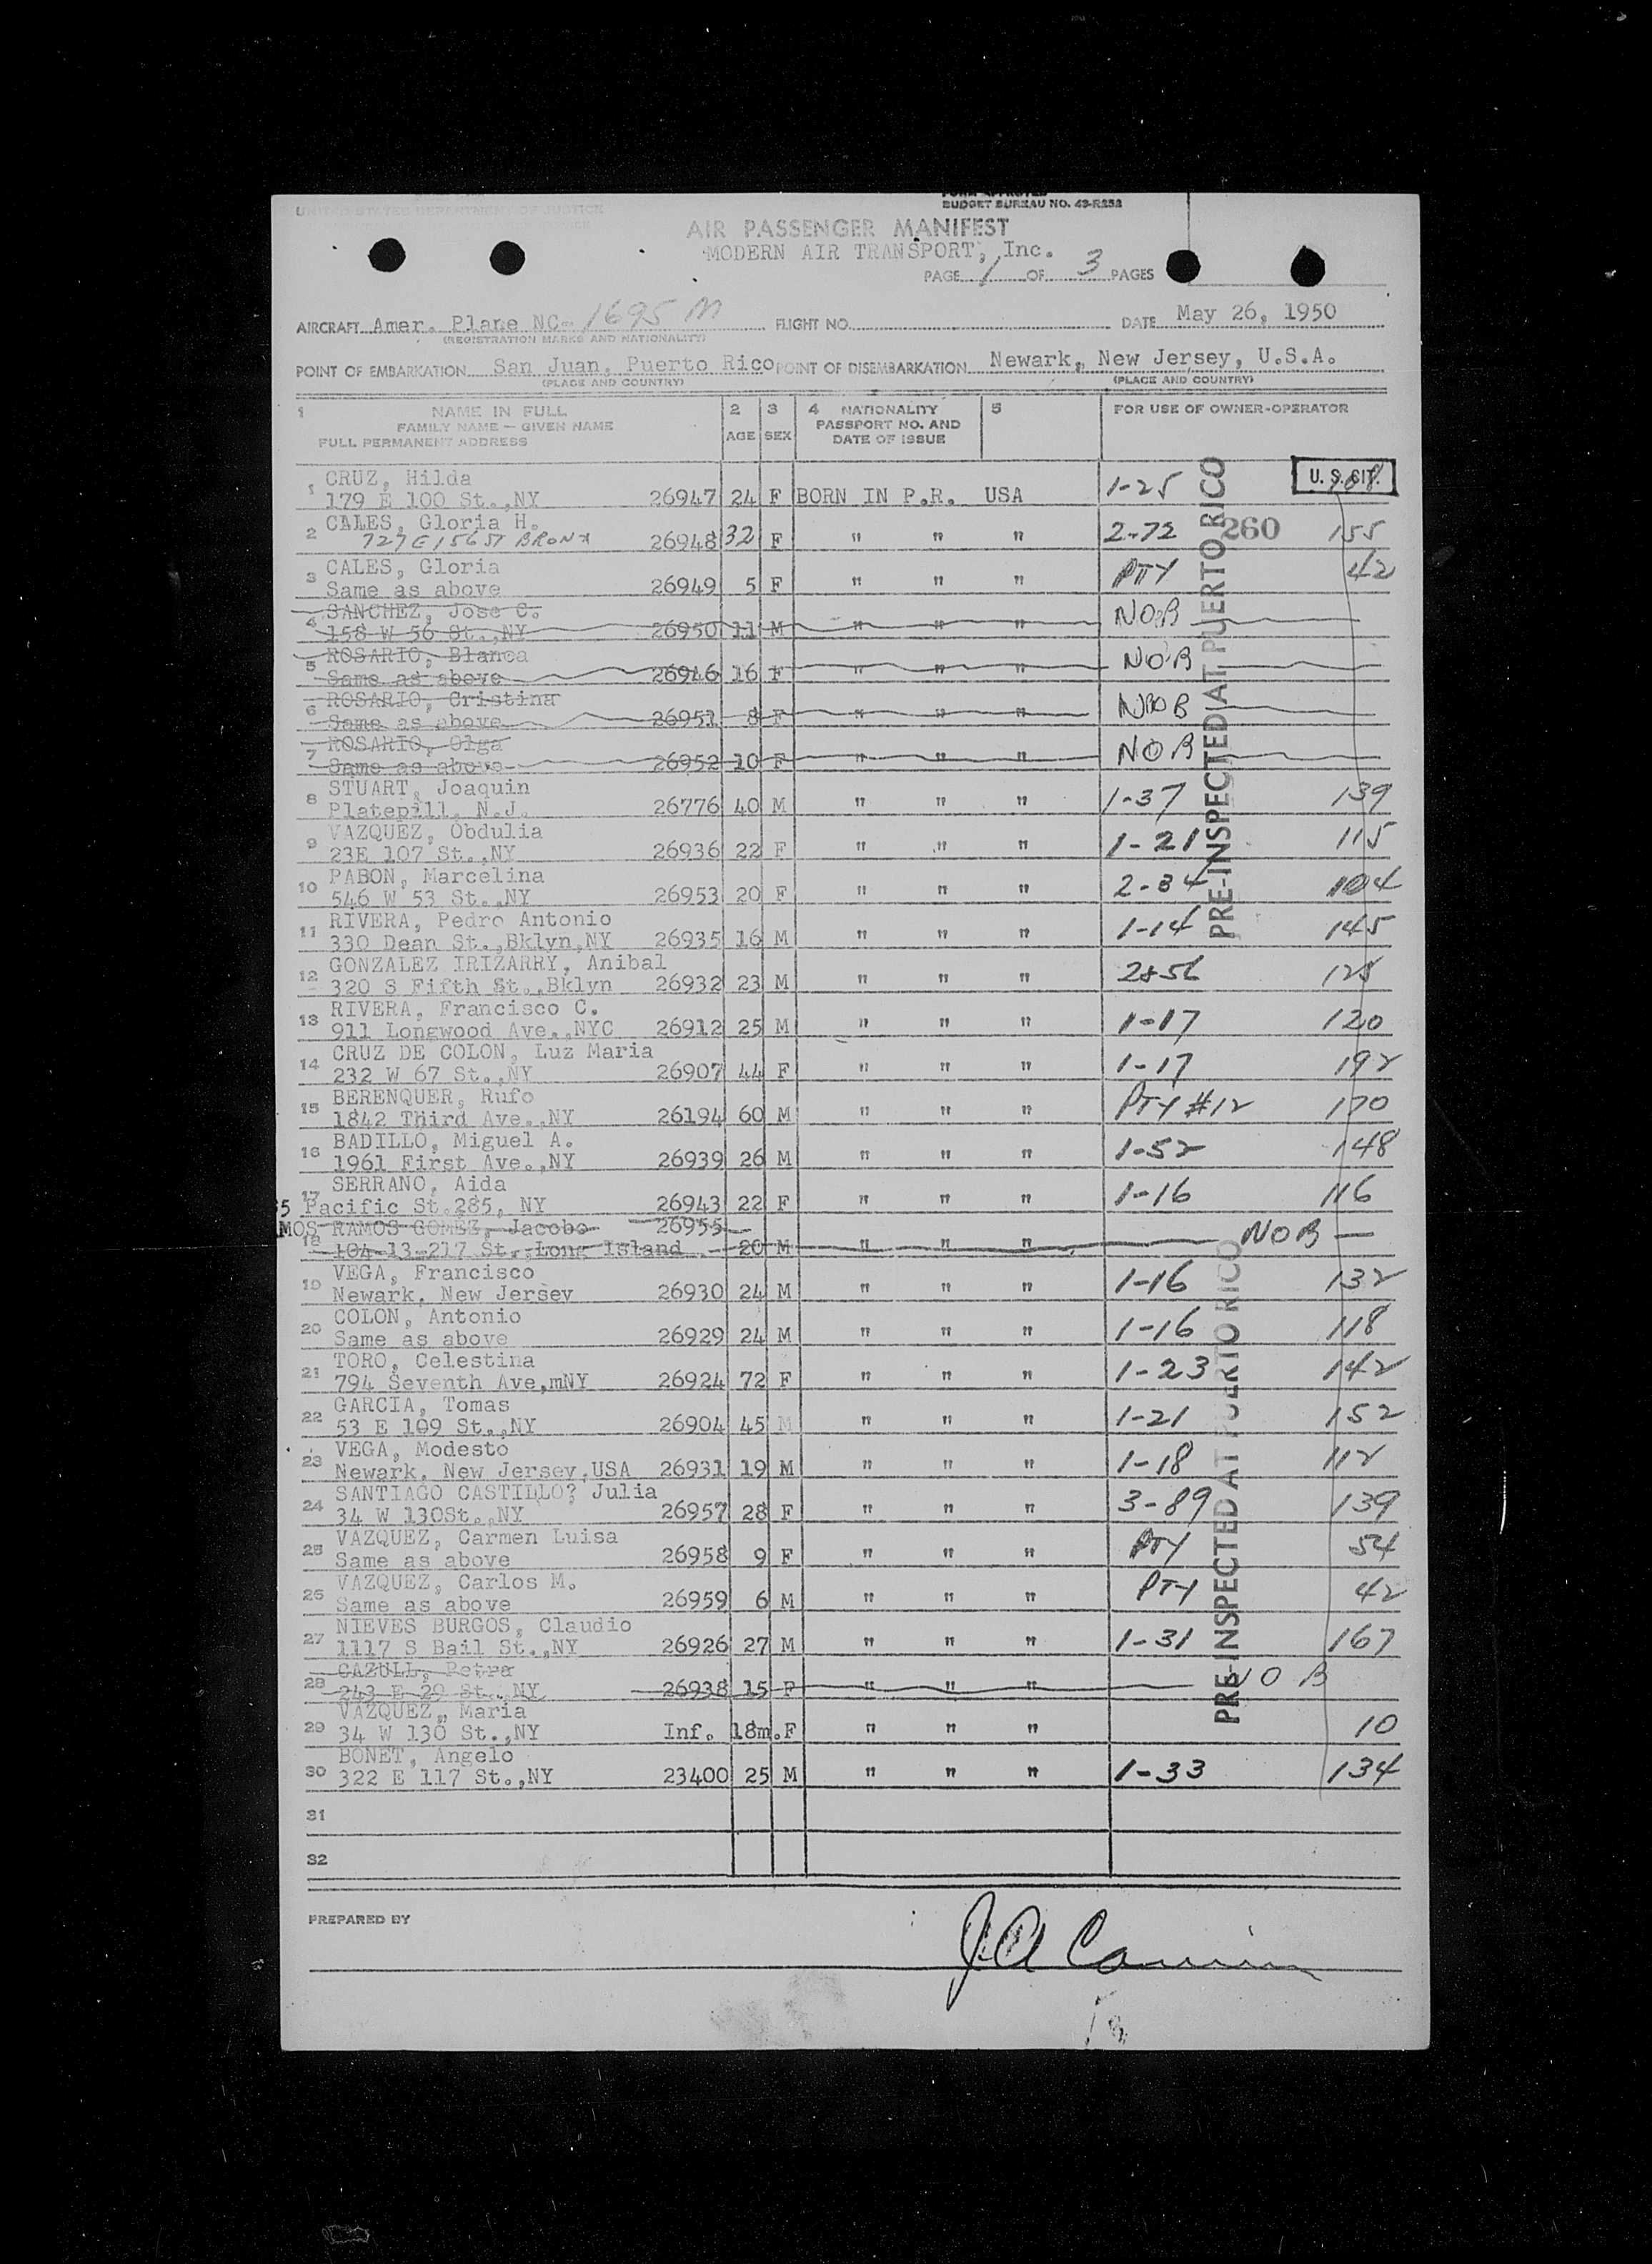 UNITED STATES DEPARTMENT OF JUSTICE
FORM APPROVED
BUDGET BUREAU NO. 43-R252
AIR PASSENGER MANIFEST
MODERN AIR TRANSPORT, Inc.
PAGE 1 OF 3 PAGES
AIRCRAFT Amer. Plane NC- 1695 M FLIGHT NO. DATE May 26, 1950
(REGISTRATION MARKS AND NATIONALITY)
POINT OF EMBARKATION San Juan, Puerto Rico POINT OF DISEMBARKATION Newark, New Jersey, U.S.A.
(PLACE AND COUNTRY) (PLACE AND COUNTRY)
1 NAME IN FULL 2 3 4 NATIONALITY 5 FOR USE OF OWNER-OPERATOR
FAMILY NAME — GIVEN NAME PASSPORT NO. AND
FULL PERMANENT ADDRESS AGE SEX DATE OF ISSUE
CRUZ, Hilda U.S. CIT.
1 179 E 100 St.,NY 26947 24 F BORN IN P.R. USA 1-25
CALES, Gloria H.
2 727 E 156 ST BRONX 26948 32 F " " " 2-72 260 155
CALES, Gloria
3 Same as above 26949 5 F " " " PTY 42
SANCHEZ, Jose C.
4 158 W 56 St.,NY 26950 11 M " " " NOB
ROSARIO, Blanca
5 Same as above 26946 16 F " " " NOB
ROSARIO, Cristina
6 Same as above 26951 8 F " " " NOB
ROSARIO, Olga
7 Same as above 26952 10 F " " " NOB
STUART, Joaquin
8 Platepill, N.J. 26776 40 M " " " 1-37 139
VAZQUEZ, Obdulia
9 23E 107 St.,NY 26936 22 F " " " 1-21 115
PABON, Marcelina
10 546 W 53 St.,NY 26953 20 F " " " 2-34 104
RIVERA, Pedro Antonio
11 330 Dean St.,Bklyn,NY 26935 16 M " " " 1-14 145
GONZALEZ IRIZARRY, Anibal
12 320 S Fifth St.,Bklyn 26932 23 M " " " 2-56 128
RIVERA, Francisco C.
13 911 Longwood Ave.,NYC 26912 25 M " " " 1-17 120
CRUZ DE COLON, Luz Maria
14 232 W 67 St.,NY 26907 44 F " " " 1-17 192
BERENQUER, Rufo
15 1842 Third Ave.,NY 26194 60 M " " " PTY #12 170
BADILLO, Miguel A.
16 1961 First Ave.,NY 26939 26 M " " " 1-52 148
SERRANO, Aida
17 Pacific St.285, NY 26943 22 F " " " 1-16 116
RAMOS GOMEZ, Jacobo 26955
18 104-13-217 St. Long Island 20 M " " " NOB
VEGA, Francisco
19 Newark, New Jersey 26930 24 M " " " 1-16 132
COLON, Antonio
20 Same as above 26929 24 M " " " 1-16 118
TORO, Celestina
21 794 Seventh Ave,mNY 26924 72 F " " " 1-23 142
GARCIA, Tomas
22 53 E 109 St.,NY 26904 45 M " " " 1-21 152
VEGA, Modesto
23 Newark, New Jersey,USA 26931 19 M " " " 1-18 112
SANTIAGO CASTILLO? Julia
24 34 W 130St.,NY 26957 28 F " " " 3-89 139
VAZQUEZ, Carmen Luisa
25 Same as above 26958 9 F " " " PTY 54
VAZQUEZ, Carlos M.
26 Same as above 26959 6 M " " " PTY 42
NIEVES BURGOS, Claudio
27 1117 S Bail St.,NY 26926 27 M " " " 1-31 167
CAZULL, Petra
28 243 E 29 St. NY 26938 15 F " " " NOB
VAZQUEZ, Maria
29 34 W 130 St.,NY Inf. 18m. F " " " 10
BONET, Angelo
30 322 E 117 St.,NY 23400 25 M " " " 1-33 134
31
32
PRE-INSPECTED AT PUERTO RICO
PRE-INSPECTED AT PUERTO RICO
PREPARED BY